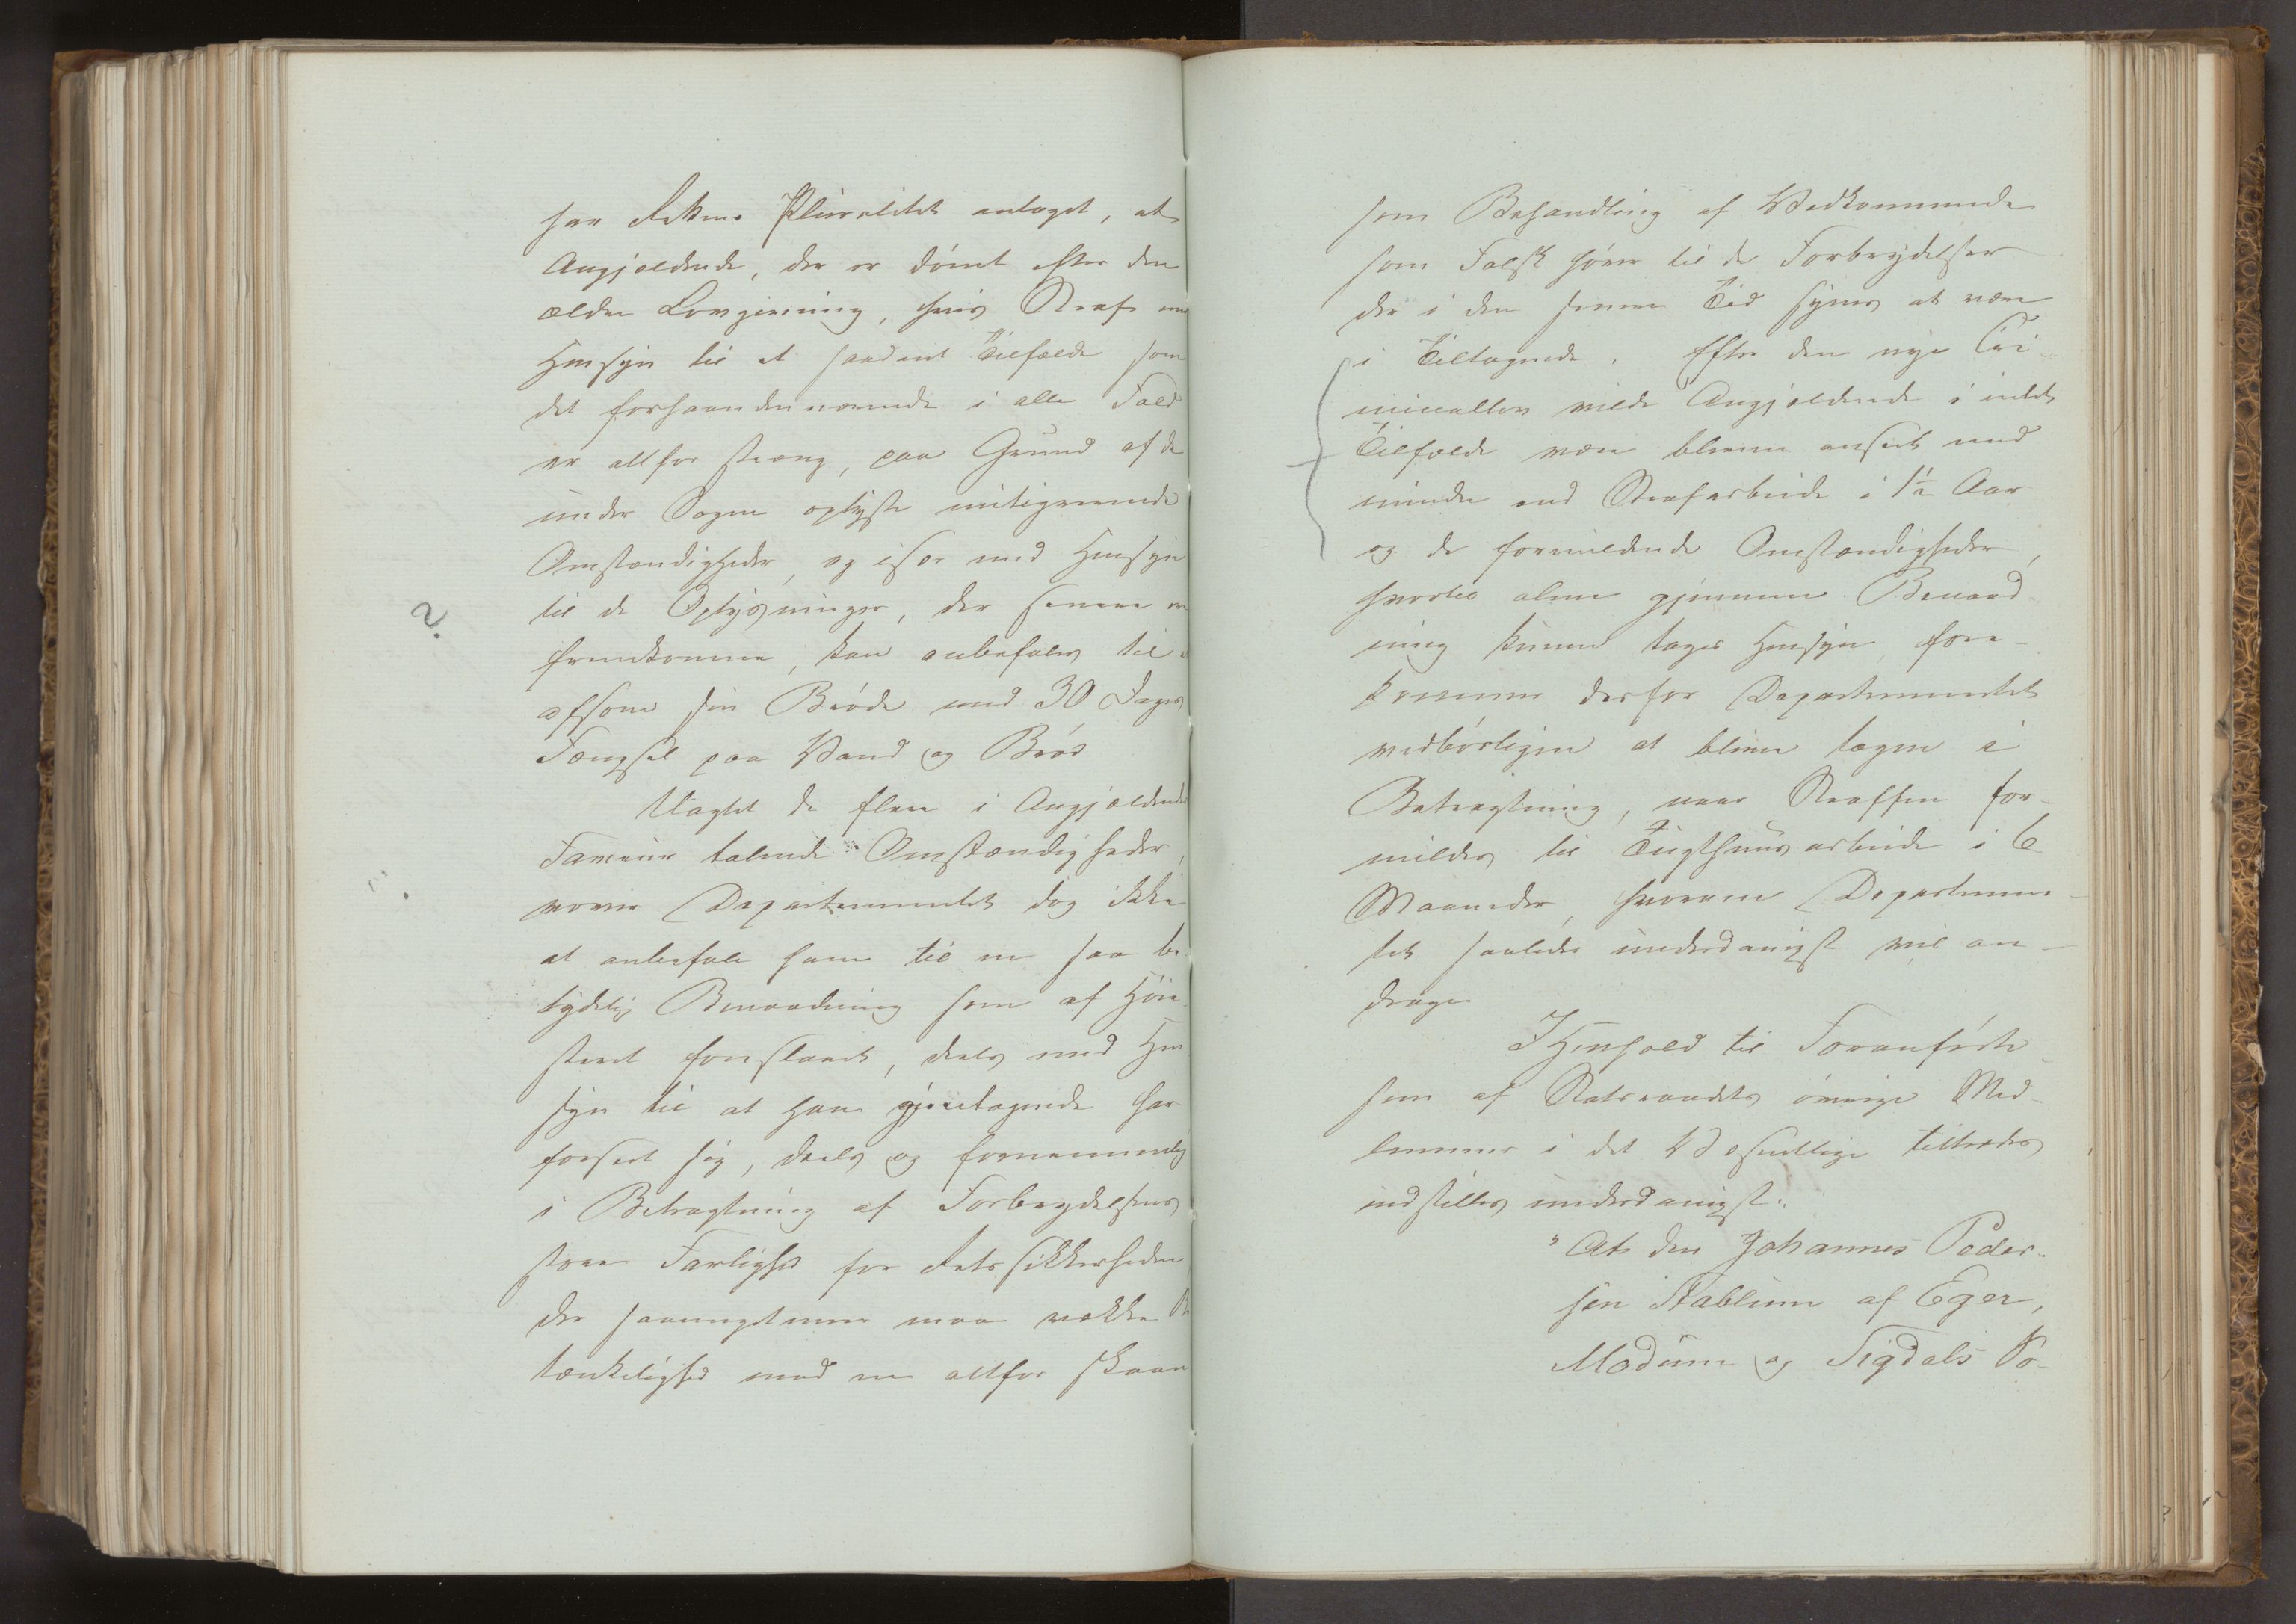 har Rettens Pluralitet antaget, at
Angjældende, der er dømt efter den
ældre Lovgivning, hvis Straf med
Hensyn til et saadant Tilfælde som
det forhaandenværende i alle Fald
er altfor streng, paa Grund af de
under Sagen oplyste mitigerende
Omstændigheder, og især med Hensyn
til de Oplysninger, der senere ere
fremkomne, kan anbefales til
afsone sin Brøde med 30 Dages
Fængsel paa Vand og Brød
Uagtet de flere i Angjældendes
Faveur talende Omstændigheder,
vover Departementet dog ikke
at anbefale ham til en saa be-
tydelig Benaadning som af Høie-
steret foreslaaet, deels med Hen
syn til at han gjentagende har
forseet sig, deels og fornemmelig
i Betragtning af Forbrydelsens
store Farlighed for Retssikkerheden
der saameget mere maa vække Be
tænkelighed mod en altfor skaan
?
som Behandling af Vedkommende
som Falsk hører til de Forbrydelser
der i den senere Tid synes at være
i Tiltagende. Efter den nye Cri-
minallov vilde Angjældende i intet
Tilfælde være bleven anseet med
mindre end Strafarbeide i 1½ Aar
og de formildende Omstændigheder,
hvortil alene gjennem Benaad-
ning kunne tages Hensyn fore-
kommer derfor Departementet
vedbørligen at blive tagen i
Betragtning, naar Straffen for-
mildes til Tugthuusarbeide i 6
Maaneder, hvorom Departemen-
tet saaledes underdanigst vil an-
drage
I Henhold til Foranførte
som af Statsraadets øvrige Med-
lemmer i det Væsentlige tiltrædes
indstilles underdanigst:
"At den Johannes Peder-
sen Stablum af Eger,
Modum og Sigdals So-